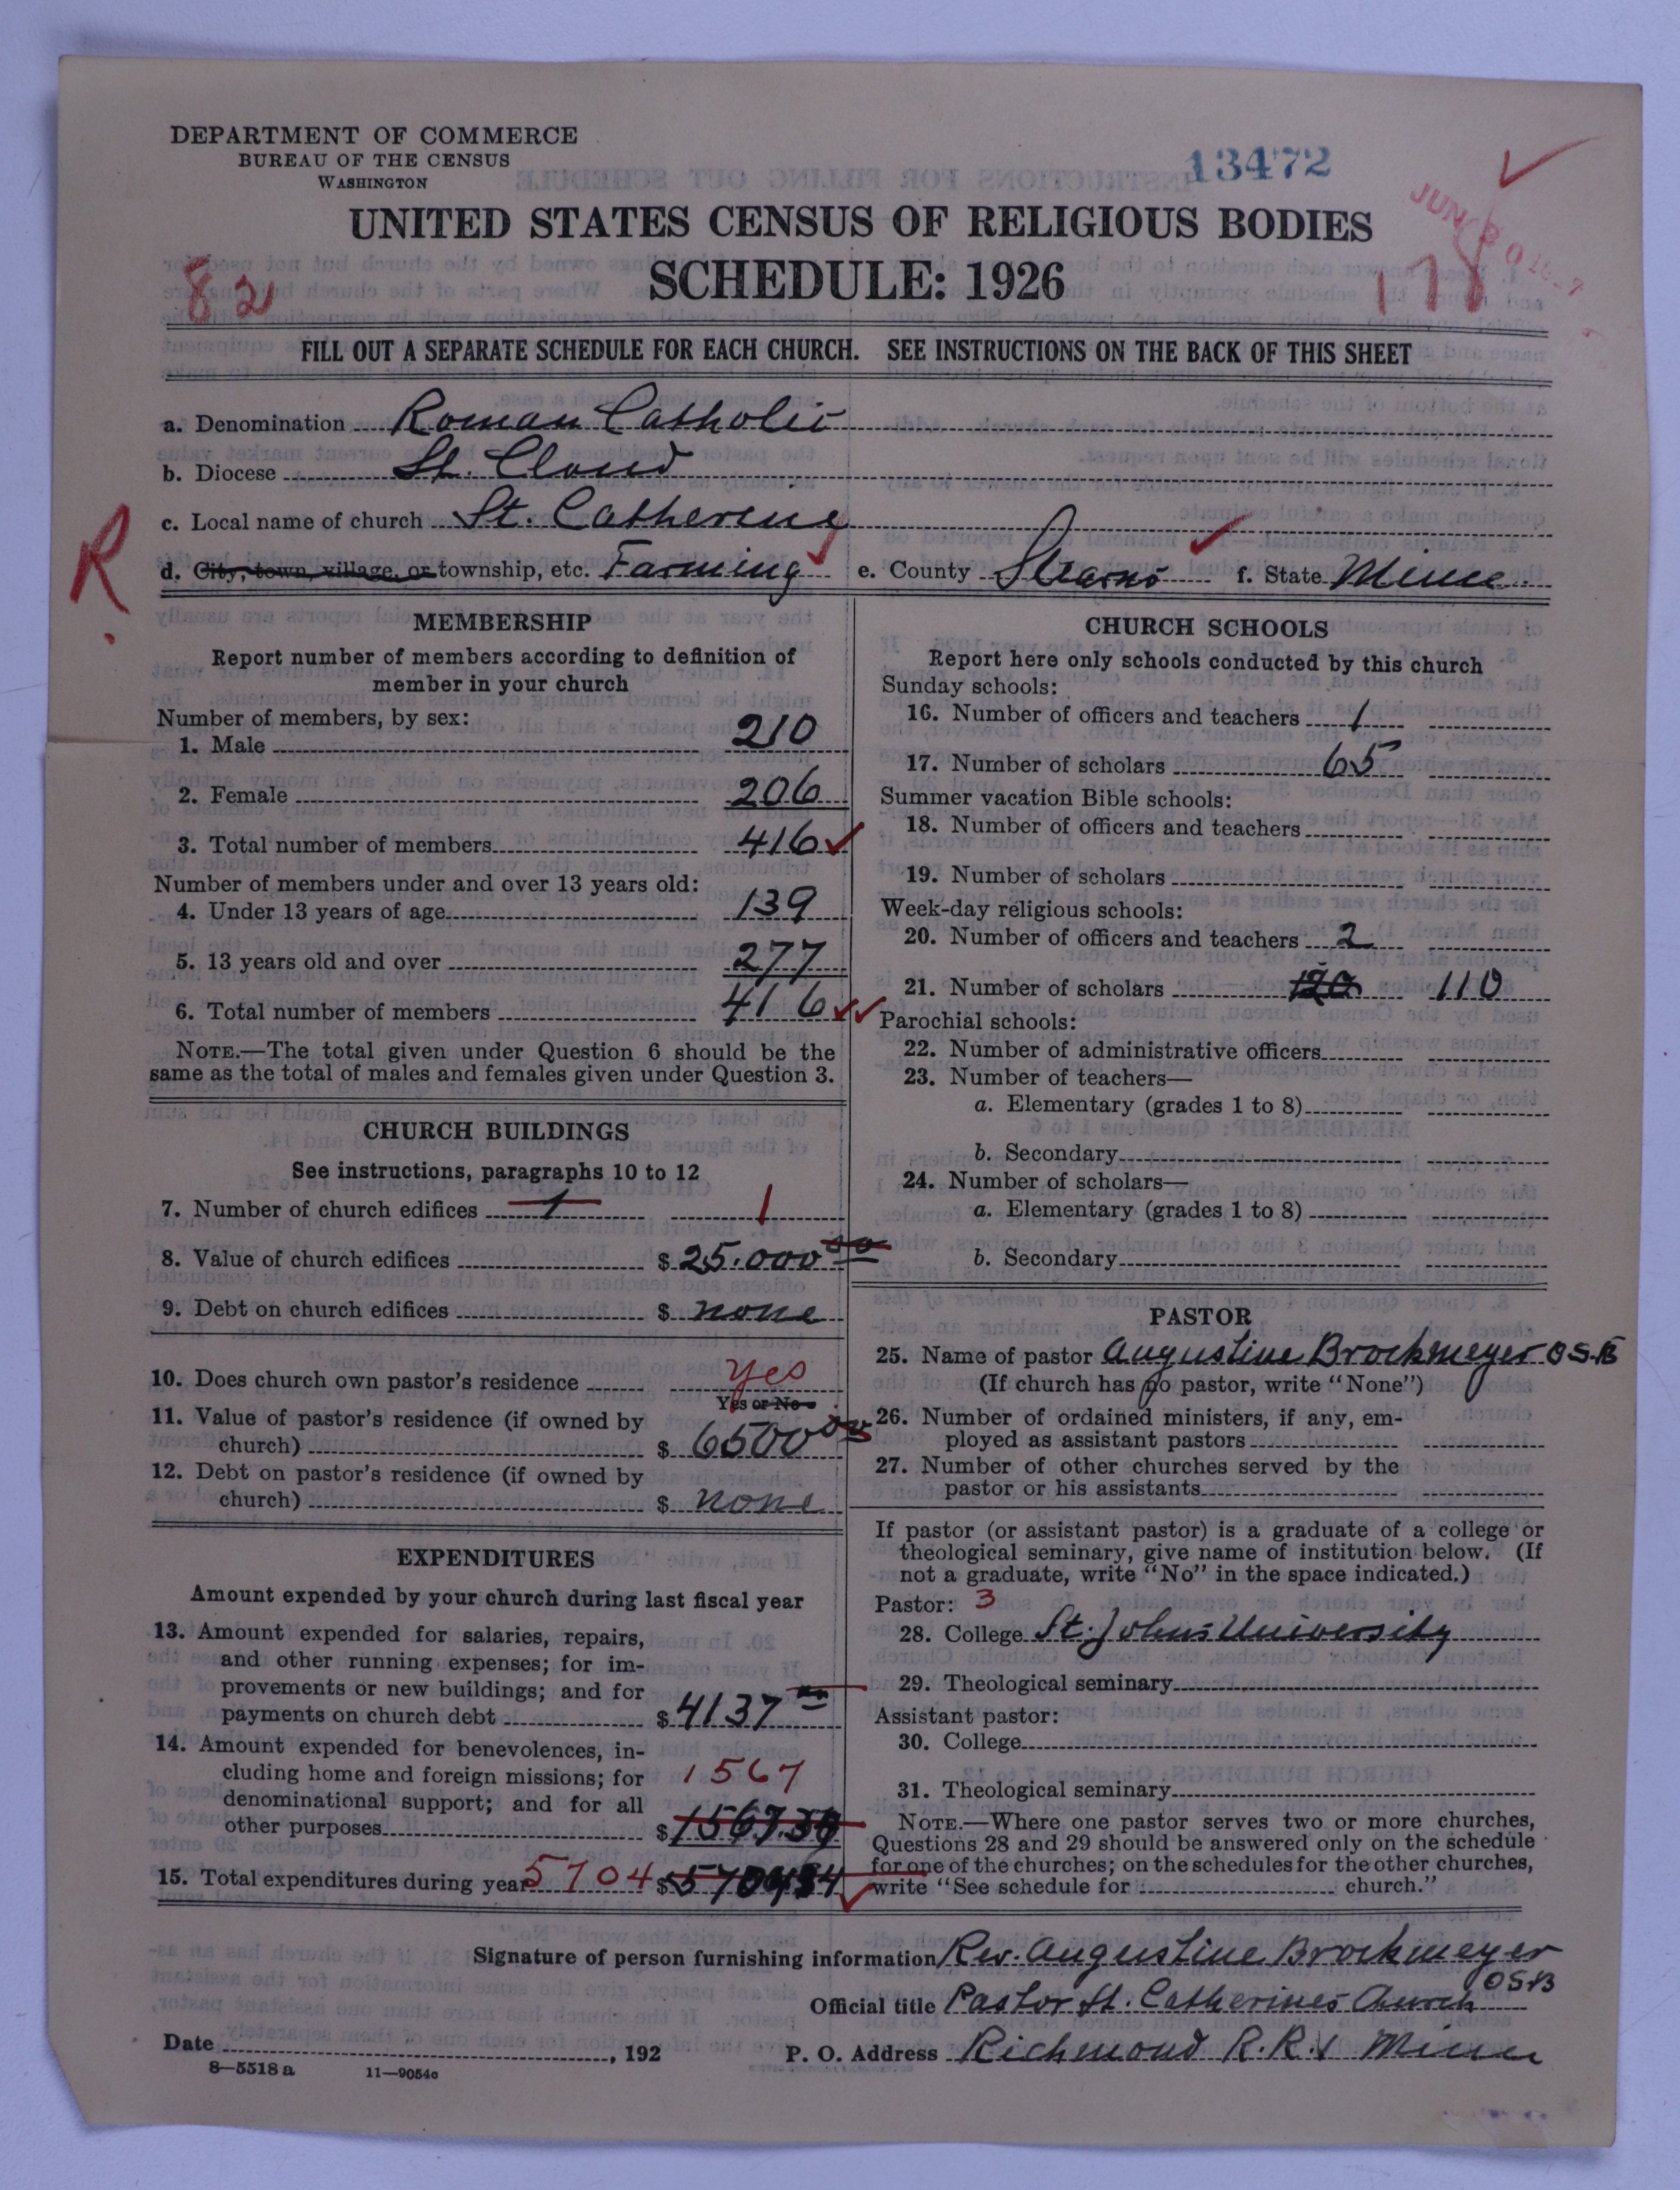 DEPARTMENT OF COMMERCE
BUREAU OF THE CENSUS
WASHINGTON
13472
UNITED STATES CENSUS OF RELIGIOUS BODIES
SCHEDULE: 1926
82
JUN 30
178
FILL OUT A SEPARATE SCHEDULE FOR EACH CHURCH. SEE INSTRUCTIONS ON THE BACK OF THIS SHEET
a. Denomination Roman Catholic
b. Diocese St. Cloud
c. Local name of church St. Catherine
R
d. City, town, village, or township, etc. Farming e. County Stearns f. State Minn.
MEMBERSHIP
Report number of members according to definition of
member in your church
Number of members, by sex:
1. Male 210
2. Female 206
3. Total number of members 416
Number of members under and over 13 years old:
4. Under 13 years of age 139
5. 13 years old and over 277
6. Total number of members 416
NOTE.—The total given under Question 6 should be the
same as the total of males and females given under Question 3.
CHURCH BUILDINGS
See instructions, paragraphs 10 to 12
7. Number of church edifices 1 1
8. Value of church edifices $ 25.000 00
9. Debt on church edifices $ none
10. Does church own pastor's residence yes
Yes or No
11. Value of pastor's residence (if owned by
church) $ 6500 00
12. Debt on pastor's residence (if owned by
church) $ none
EXPENDITURES
Amount expended by your church during last fiscal year
13. Amount expended for salaries, repairs,
and other running expenses; for im-
provements or new buildings; and for
payments on church debt $ 4137
14. Amount expended for benevolences, in-
cluding home and foreign missions; for 1567
denominational support; and for all
other purposes $ 1567.34
15. Total expenditures during year 5704 $ 5704
CHURCH SCHOOLS
Report here only schools conducted by this church
Sunday schools:
16. Number of officers and teachers 1
17. Number of scholars 65
Summer vacation Bible schools:
18. Number of officers and teachers
19. Number of scholars
Week-day religious schools:
20. Number of officers and teachers 2
21. Number of scholars 120 110
Parochial schools:
22. Number of administrative officers
23. Number of teachers—
a. Elementary (grades 1 to 8)
b. Secondary
24. Number of scholars—
a. Elementary (grades 1 to 8)
b. Secondary
PASTOR
25. Name of pastor Augustine Brockmeyer OSB
(If church has no pastor, write "None")
26. Number of ordained ministers, if any, em-
ployed as assistant pastors
27. Number of other churches served by the
pastor or his assistants
If pastor (or assistant pastor) is a graduate of a college or
theological seminary, give name of institution below. (If
not a graduate, write "No" in the space indicated.)
Pastor: 3
28. College St. Johns University
29. Theological seminary
Assistant pastor:
30. College
31. Theological seminary
NOTE.—Where one pastor serves two or more churches,
Questions 28 and 29 should be answered only on the schedule
for one of the churches; on the schedules for the other churches,
write "See schedule for church."
Signature of person furnishing information Rev. Augustine Brockmeyer
OSB
Official title Pastor St. Catherines Church
Date , 192
P. O. Address Richmond R.R.1 Minn
8—5518 a 11—9054c